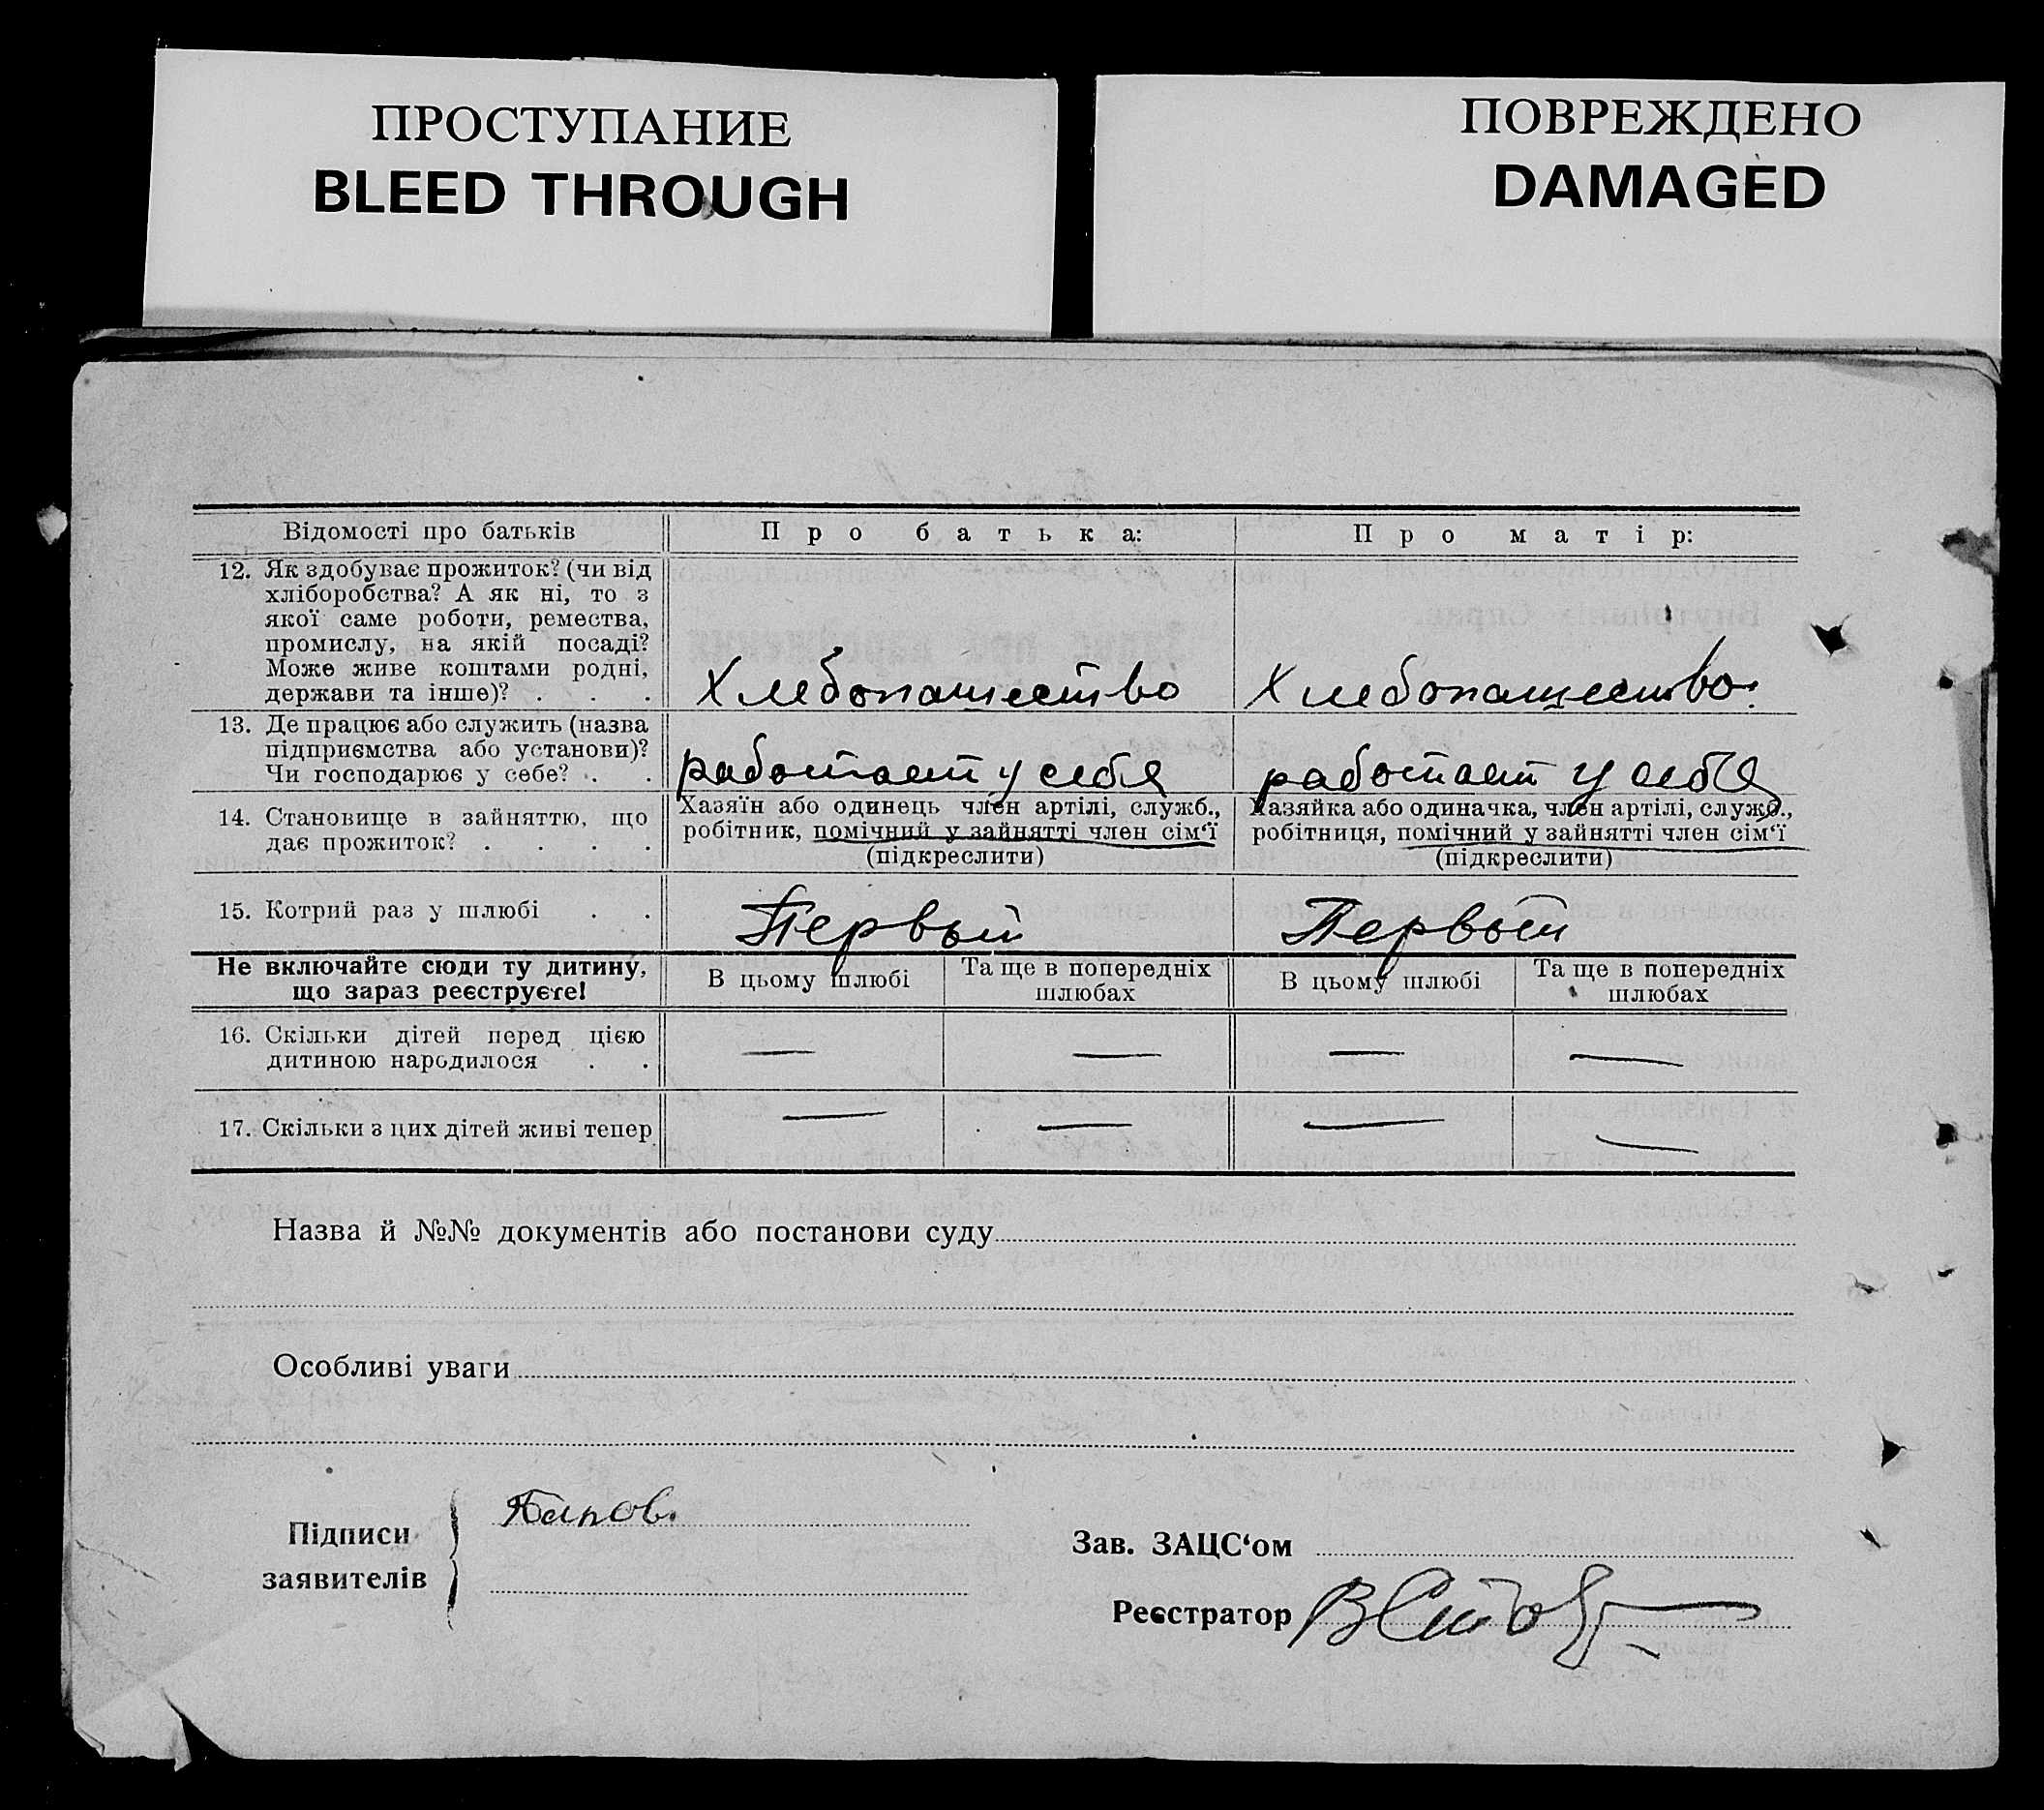 ПРОСТУПАНИЕ
BLEED THROUGH
ПОВРЕЖДЕНО
DAMAGED
Відомості про батьків
Про батька:
Про матір:
12. Як здобуває прожиток? (чи від
хліборобства? А як ні, то з
якої саме роботи, ремества,
промислу, на якій посаді?
Може живе коштами родні,
держави та інше)? . . .
Хлебопашество
Хлебопашество.
13. Де працює або служить (назва
підприємства або установи)?
Чи господарює у себе? . .
работает у себя
работает у себя
14. Становище в зайняттю, що
дає прожиток? . . . .
Хазяїн або одинець член артілі, служб.,
робітник, помічний у зайнятті член сім‘ї
(підкреслити)
Хазяйка або одиначка, член артілі, служб.,
робітниця, помічний у зайнятті член сім‘ї
(підкреслити)
15. Котрий раз у шлюбі . .
Первый
Первый
Не включайте сюди ту дитину,
що зараз реєструєте!
В цьому шлюбі
Та ще в попередніх
шлюбах
В цьому шлюбі
Та ще в попередніх
шлюбах
16. Скільки дітей перед цією
дитиною народилося . .
— — — —
17. Скільки з цих дітей живі тепер
— — — —
Назва й №№ документів або постанови суду
Особливі уваги
Підписи
заявителів
Зав. ЗАЦС‘ом
Реєстратор